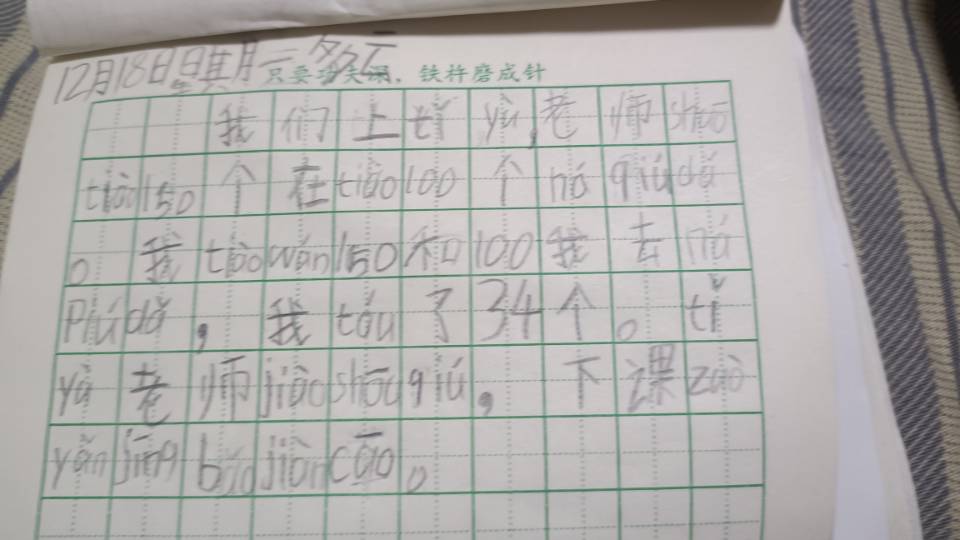 12月18日星期二 多云
只要功夫深，铁杵磨成针
我们上tǐ yù，老师shuō
tiào150个在tiào100个ná qiú dǎ
。我tiào wán150和100我去ná
Piú dǎ，我tóu了34个。tǐ
yù老师jiào shōu qiú，下课zuò
yǎn jīng bǎo jiàn cāo。